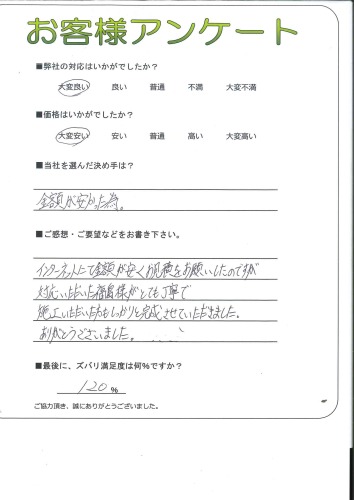 お客様アンケート
■弊社の対応はいかがでしたか?
大変良い 良い 普通 不満 大変不満
■価格はいかがでしたか?
大変安い 安い 普通 高い 大変高い
■当社を選んだ決め手は?
金額が安かった為。
■ご感想・ご要望などをお書き下さい。
インターネットにて金額が安くお見積をお願いしたのですが
対応いただいた福島様がとても丁寧で
施工いただいた方もしっかりと完成させていただきました。
ありがとうございました。
■最後に、ズバリ満足度は何%ですか?
120 %
ご協力頂き、誠にありがとうございました。